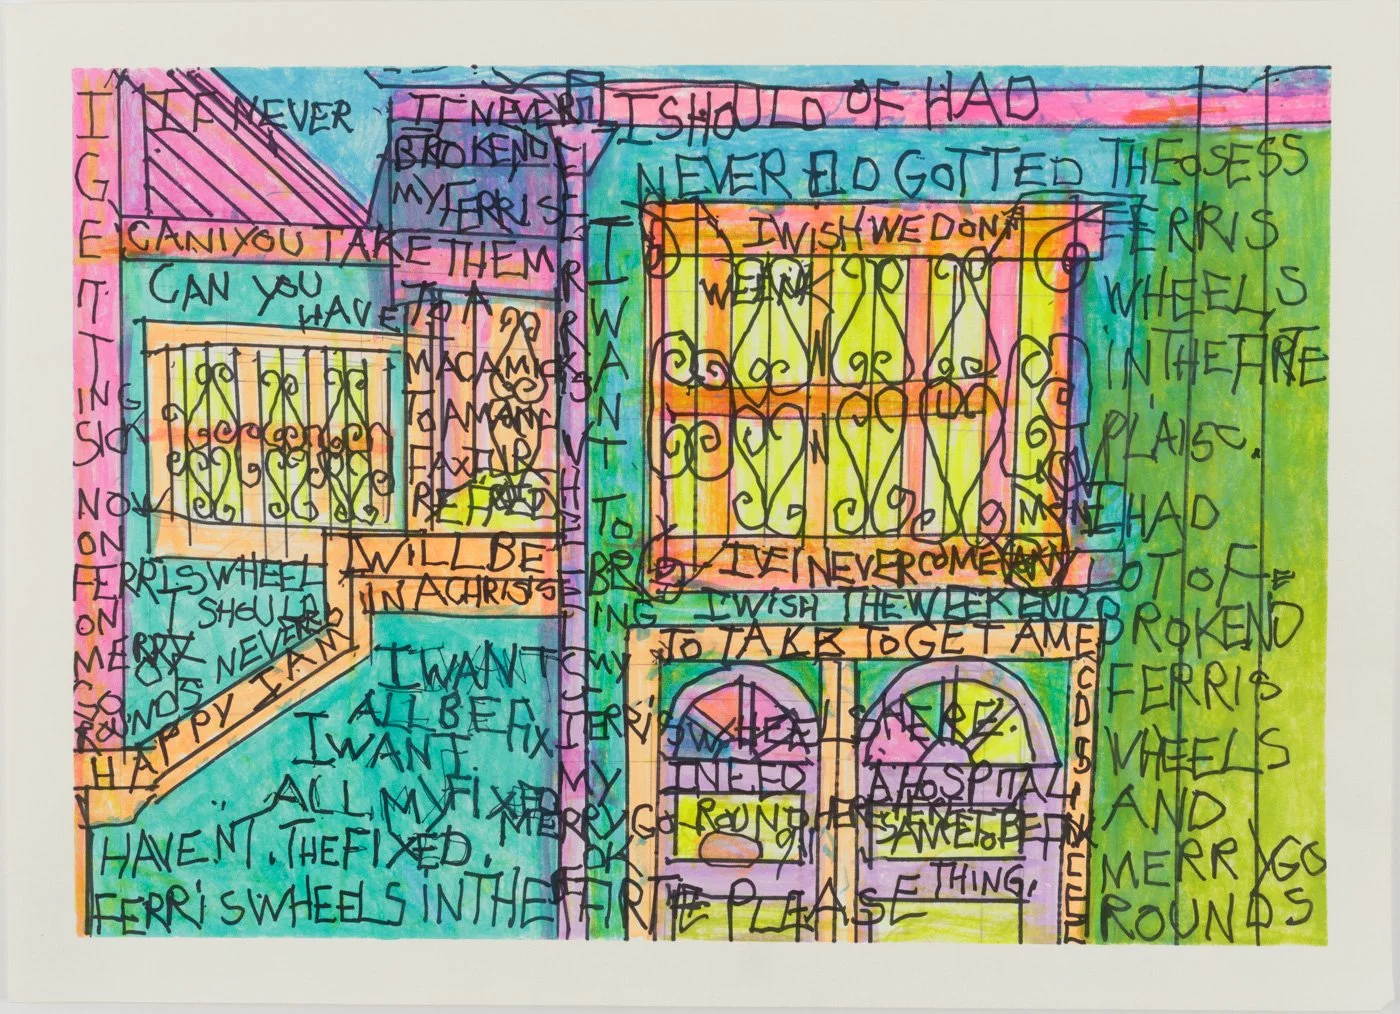 I
GE
IT
TING
SICK
NOW
ON
FERRIS WHEEL
ON
MERRY
GO
ROUNDS
I SHOULD
NEVER
IF NEVER
CAN I YOU TAKE THEM
CAN YOU
HAVE TO A
IF NEVER
BROKEND
MY FERRIS
TO A
FAX FIR
WILL BE
IN A CHRISIS
HAPPY I AN
I WANT
ALL BE FIX
I WANT
ALL MY FIXED
HAVEN'T. THE FIXED.
FERRIS WHEELS IN THE FIRTE PLEASE
FERRIS WHEELS
I
WANT
TO
BR
ING
MY
FERRIS WHEELS HERE.
MY
MERRY GO ROUND HERE
I NEED A HOSPITAL
SAME
THING.
I SHOULD OF HAD
NEVER EID GOTTED THEOSESS
FERRIS
WHEELS
IN THE FIRTE
PLAISC.
I HAD
LOT OF
BROKEND
FERRIS
WHEELS
AND
MERRYGO
ROUNDS
I WISH WE DON'T
IF I NEVER COME ANY
I WISH THE WEEKEND
TO TAKE TO GET A MECDSINCES